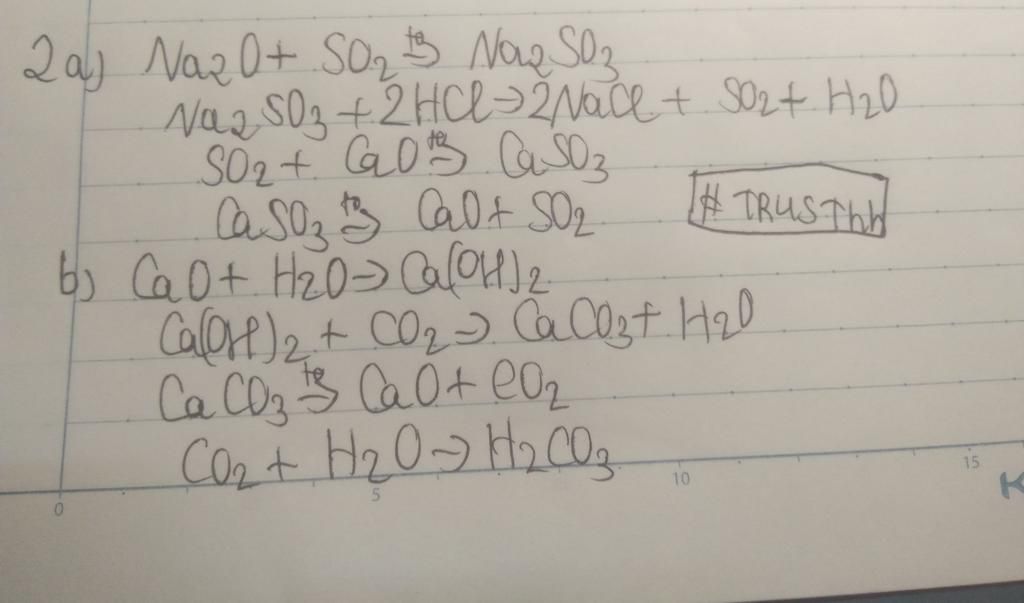 2a) Na2O + SO2 t°→ Na2SO3
Na2SO3 + 2HCl → 2NaCl + SO2 + H2O
SO2 + CaO t°→ CaSO3
CaSO3 t°→ CaO + SO2
# TRUSThh
b) CaO + H2O → Ca(OH)2
Ca(OH)2 + CO2 → CaCO3 + H2O
CaCO3 t°→ CaO + CO2
CO2 + H2O → H2CO3
0 5 10 15
K